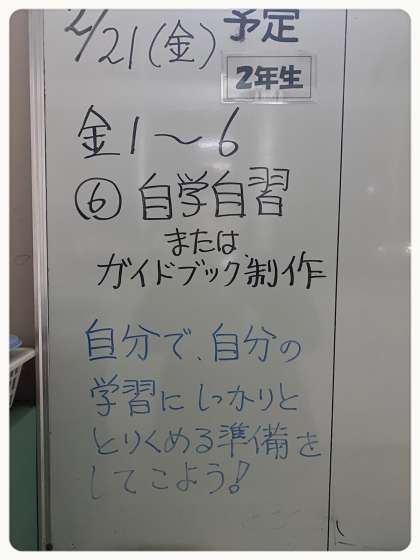 2/21(金) 予定
2年生
金1〜6
⑥ 自学自習
または
ガイドブック制作
自分で、自分の
学習にしっかりと
とりくめる準備を
してこよう!